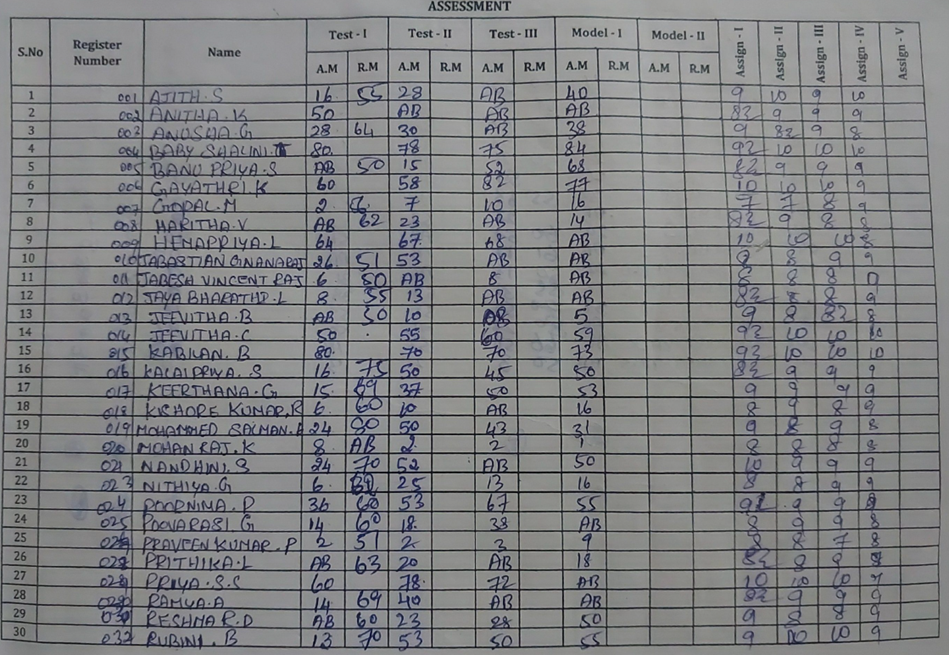 ASSESSMENT
S.No Register Number Name Test - I Test - II Test - III Model - I Model - II Assign - I Assign - II Assign - III Assign - IV Assign - V
A.M R.M A.M R.M A.M R.M A.M R.M A.M R.M
1 001 AJITH.S 16 55 28 AB 40 9 10 9 10
2 002 ANITHA.K 50 AB AB AB 9 9 9
3 003 ANUSHA.G 28 64 30 AB 38 9 9 8
4 004 BABY SHALINI 80 78 75 84 10 10 10
5 005 BANU PRIYA.S AB 50 15 52 68 9 9 9
6 006 GAYATHRI.K 60 58 82 77 10 10 10 9
7 007 GOPAL.M 2 7 10 16 7 7 8 9
8 008 HARITHA.V AB 62 23 AB 14 9 8 8
9 009 HEMAPRIYA.L 64 67 68 AB 10 10 10 8
10 010 JABASTIAN GNANARAJ 26 51 53 AB AB 9 8 9 9
11 011 JABESH VINCENT RAJ 6 50 AB 8 AB 8 8 8
12 012 JAYA BHARATHI.L 8 55 13 AB AB 8 8 9
13 013 JEEVITHA.B AB 50 10 5 9 8 8
14 014 JEEVITHA.C 50 55 60 59 10 10 10
15 015 KABILAN.B 80 70 70 73 10 10 10
16 016 KALAIPRIYA.S 16 75 50 45 50 9 9 9
17 017 KEERTHANA.G 15 69 37 50 53 9 9 9 9
18 018 KISHORE KUMAR.R 6 60 10 AB 16 8 9 8 9
19 019 MOHAMMED SALMAN.A 24 80 50 43 31 9 8 9 8
20 020 MOHAN RAJ.K 8 AB 2 2 8 8 8 8
21 021 NANDHINI.S 24 70 52 AB 50 10 9 9 9
22 023 NITHIYA.G 6 25 13 16 8 8 9 9
23 024 POORNIMA.P 36 60 53 67 55 9 9
24 025 POOVARASI.G 14 60 18 38 AB 8 9 9 8
25 PRAVEEN KUMAR.P 2 51 2 3 9 8 8 7 8
26 PRITHIKA.L AB 63 20 AB 18 8 9
27 PRIYA.S.S 60 78 72 AB 10 10 10
28 RAMYA.A 14 69 40 AB AB 9 9 9
29 RESHMA R.D AB 60 23 28 50 9 8 8 9
30 032 RUBINI.B 13 70 53 50 55 9 10 10 9